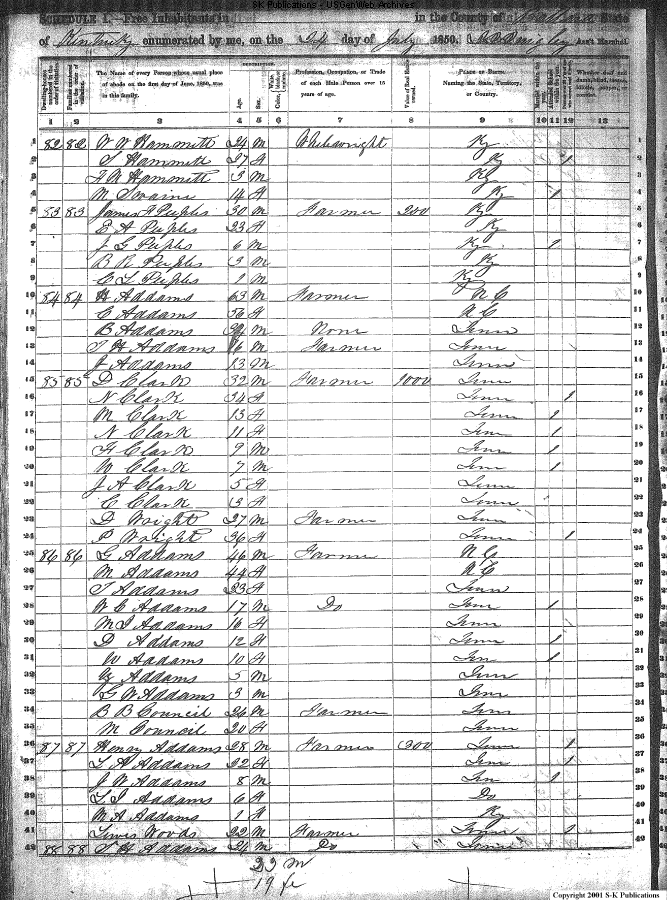 S-K Publications - USGenWeb Archives
SCHEDULE I.—Free Inhabitants in in the County of State
of Kentucky enumerated by me, on the day of July 1850. Ass't Marshal
Dwelling-houses numbered in the order of visitation.
Families numbered in the order of visitation.
The Name of every Person whose usual place of abode on the first day of June, 1850, was in this family.
DESCRIPTION.
Age.
Sex.
Color, White, black, or mulatto.
Profession, Occupation, or Trade of each Male Person over 15 years of age.
Value of Real Estate owned.
PLACE OF BIRTH. Naming the State, Territory, or Country.
Married within the year.
Attended School within the year.
Whether deaf and dumb, blind, insane, idiotic, pauper, or convict.
1 2 3 4 5 6 7 8 9 10 11 12 13
1 82 82 W W Hammett 24 M Wheelwright Ky 1
2 S Hammett 27 F Ky 1 2
3 F R Hammett 3 M Ky 3
4 M Swaine 14 F Ky 1 4
5 83 83 James F Peeples 30 M Farmer 200 Ky 5
6 E A Peeples 23 F Ky 6
7 J G Peeples 6 M Ky 1 7
8 B R Peeples 3 M Ky 8
9 C L Peeples 1 M Ky 9
10 84 84 H Addams 63 M Farmer N C 10
11 C Addams 56 F N C 11
12 B Addams M None Tenn 12
13 T H Addams 16 M Farmer Tenn 13
14 J Addams 13 M Tenn 14
15 85 85 D Clark 32 M Farmer 1000 Tenn 15
16 N Clark 34 F Tenn 1 16
17 M Clark 13 F Tenn 1 17
18 N Clark 11 F Tenn 1 18
19 F Clark 9 M Tenn 1 19
20 W Clark 7 M Tenn 1 20
21 J A Clark 5 F Tenn 21
22 C Clark 3 F Tenn 22
23 D Wright 27 M Farmer Tenn 23
24 P Wright 36 F Tenn 1 24
25 86 86 G Addams 46 M Farmer N C 25
26 M Addams 44 F N C 26
27 T Addams 23 F Tenn 27
28 W C Addams 17 M Do Tenn 1 28
29 M J Addams 16 F Tenn 29
30 D Addams 12 F Tenn 1 30
31 W Addams 10 F Ten 1 31
32 Addams 5 M Tenn 32
33 G W Addams 3 M Tenn 33
34 B B Council 26 M Farmer Tenn 34
35 M Council 20 F Tenn 35
36 87 87 Henry Addams 28 M Farmer 200 Tenn 1 36
37 L A Addams 22 F Tenn 1 37
38 J W Addams 8 M Ten 1 38
39 L J Addams 6 F Do 39
40 M A Addams 1 F Ky 40
41 Lewis Woods 22 M Farmer Tenn 1 41
42 88 88 S H Addams 24 M Do Tenn 42
23 M
19 fe
Copyright 2001 S-K Publications